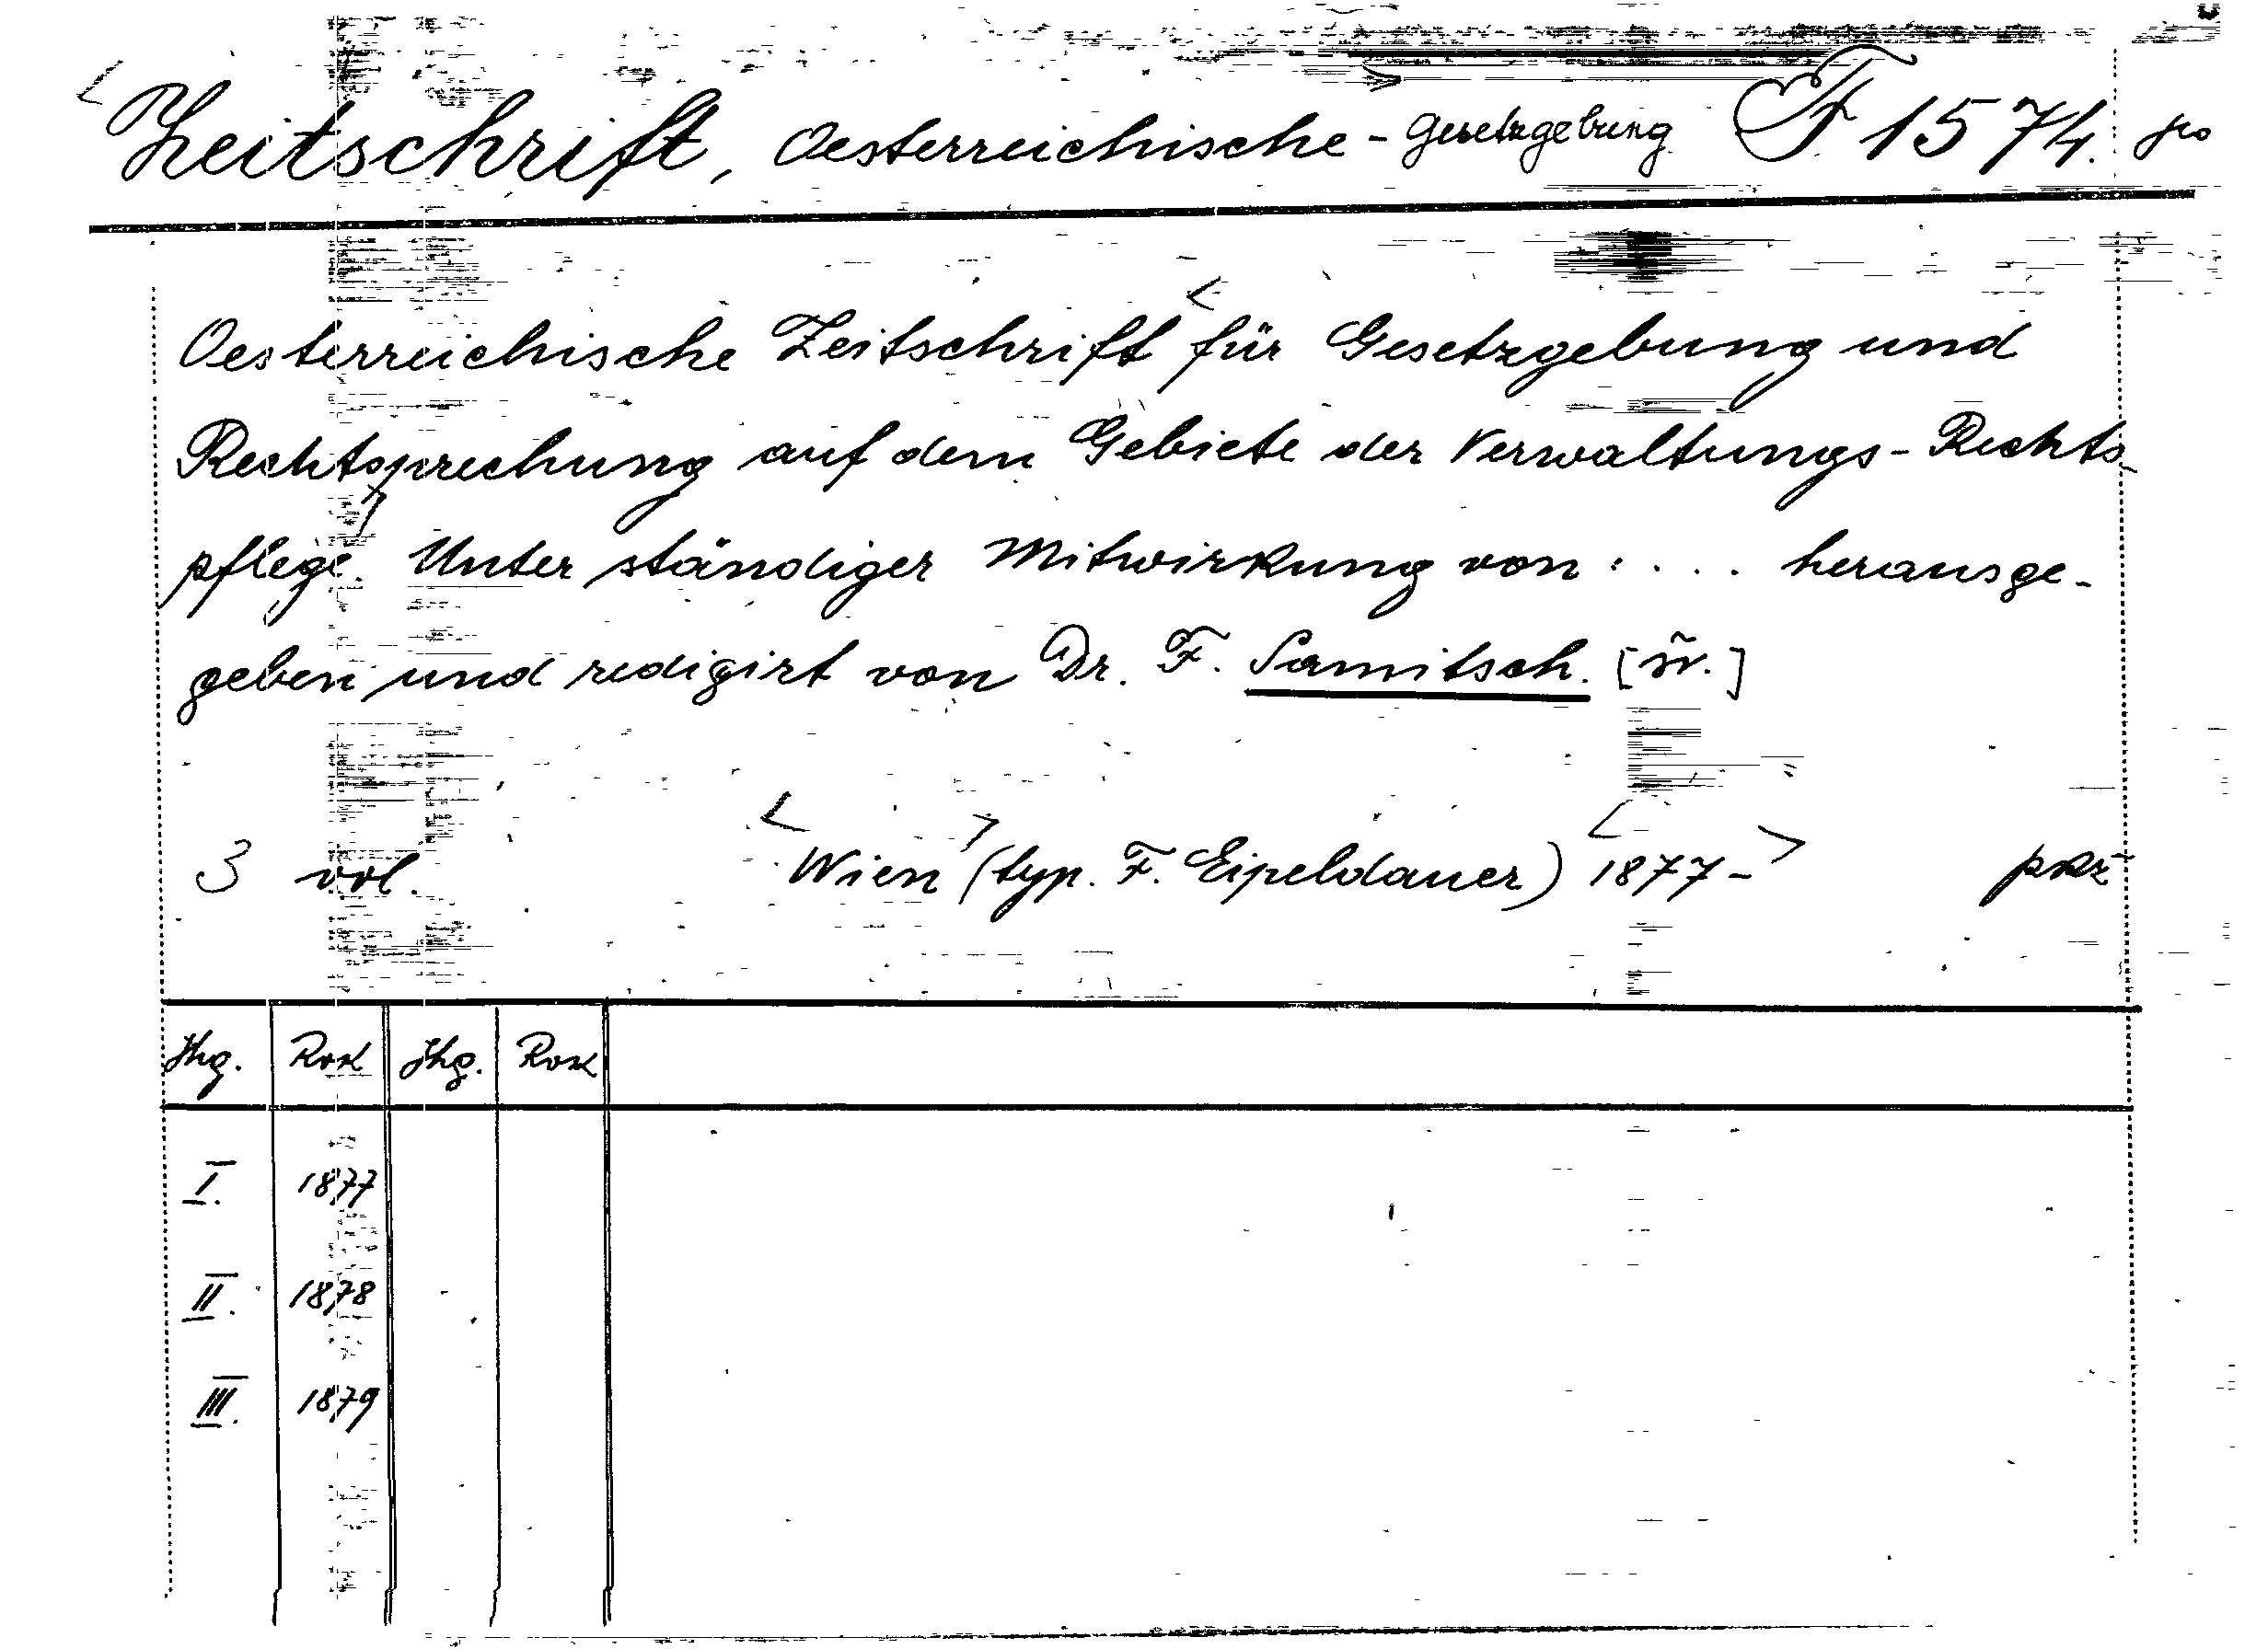 Zeitschrift, Oesterreichische - Gesetzgebung F 1574.
Oesterreichische Zeitschrift für Gesetzgebung und
Rechtsprechung auf dem Gebiete der Verwaltungs-Rechts-
pflege. Unter ständiger Mitwirkung von: ... herausge-
geben und redigirt von Dr. F. Samitsch.
3 vol. Wien (typ. F. Eipeldauer) 1877-
Jhg. Rok Jhg. Rok
I. 1877
II. 1878
III. 1879